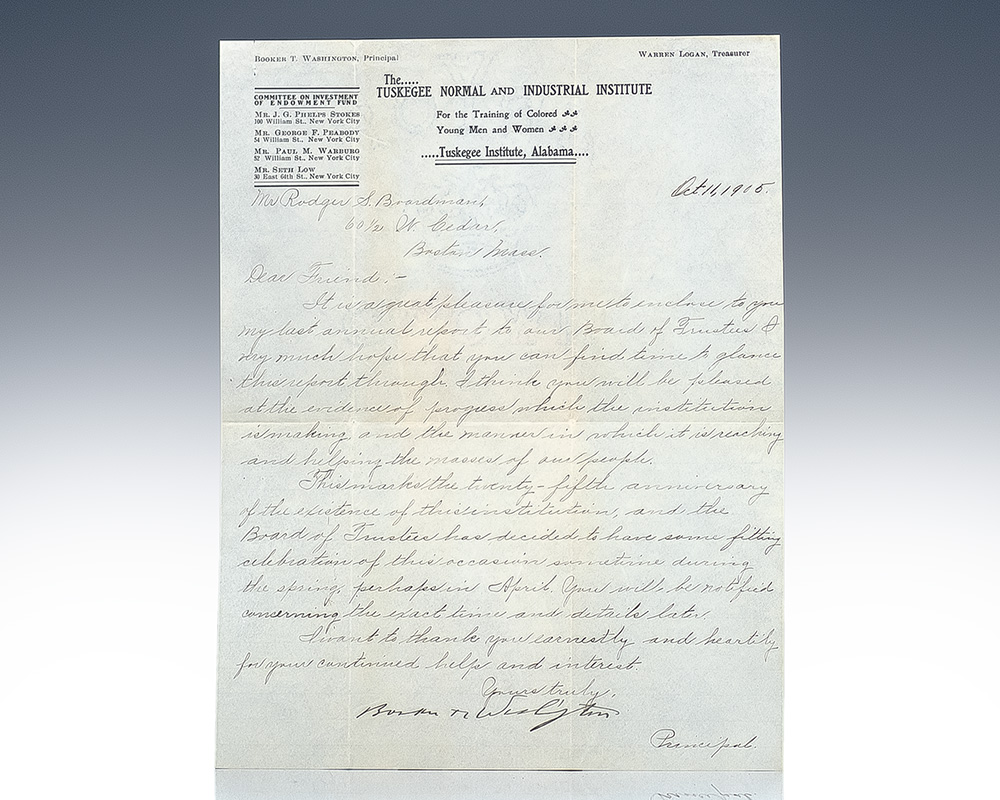 BOOKER T. WASHINGTON, Principal
WARREN LOGAN, Treasurer
The.....
TUSKEGEE NORMAL AND INDUSTRIAL INSTITUTE
For the Training of Colored
Young Men and Women
.....Tuskegee Institute, Alabama....
COMMITTEE ON INVESTMENT
OF ENDOWMENT FUND
MR. J. G. PHELPS STOKES
100 William St., New York City
MR. GEORGE F. PEABODY
54 William St., New York City
MR. PAUL M. WARBURG
52 William St., New York City
MR. SETH LOW
30 East 64th St., New York City
Oct 11, 1905.
Mr Rodger S. Boardman,
60 1/2 W. Cedar,
Boston Mass.
Dear Friend:-
It is a great pleasure for me to enclose to you
my last annual report to our Board of Trustees I
very much hope that you can find time to glance
this report through. I think you will be pleased
at the evidence of progress which the institution
is making, and the manner in which it is reaching
and helping the masses of our people.
This marks the twenty-fifth anniversary
of the existence of this institution, and the
Board of Trustees has decided to have some fitting
celebration of this occasion sometime during
the spring, perhaps in April. You will be notified
concerning the exact time and details later.
I want to thank you earnestly and heartily
for your continued help and interest.
Yours truly,
Booker T. Washington
Principal.